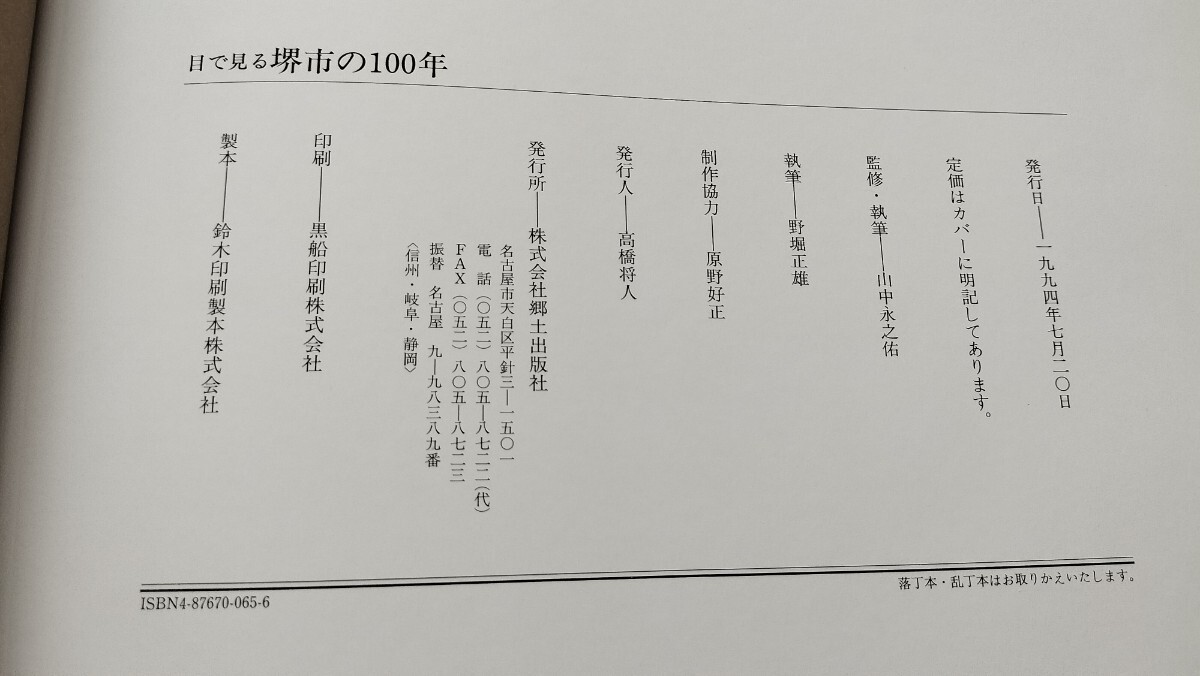 目で見る堺市の100年
発行日――一九九四年七月二〇日
定価はカバーに明記してあります。
監修・執筆――山中永之佑
執筆――野堀正雄
制作協力――原野好正
発行人――高橋将人
発行所――株式会社郷土出版社
名古屋市天白区平針三―一五〇一
電　話（〇五二）八〇五―八七二二（代）
ＦＡＸ（〇五二）八〇五―八七二三
振替　名古屋　九―九八三八九番
〈信州・岐阜・静岡〉
印刷――黒船印刷株式会社
製本――鈴木印刷製本株式会社
落丁本・乱丁本はお取りかえいたします。
ISBN4-87670-065-6